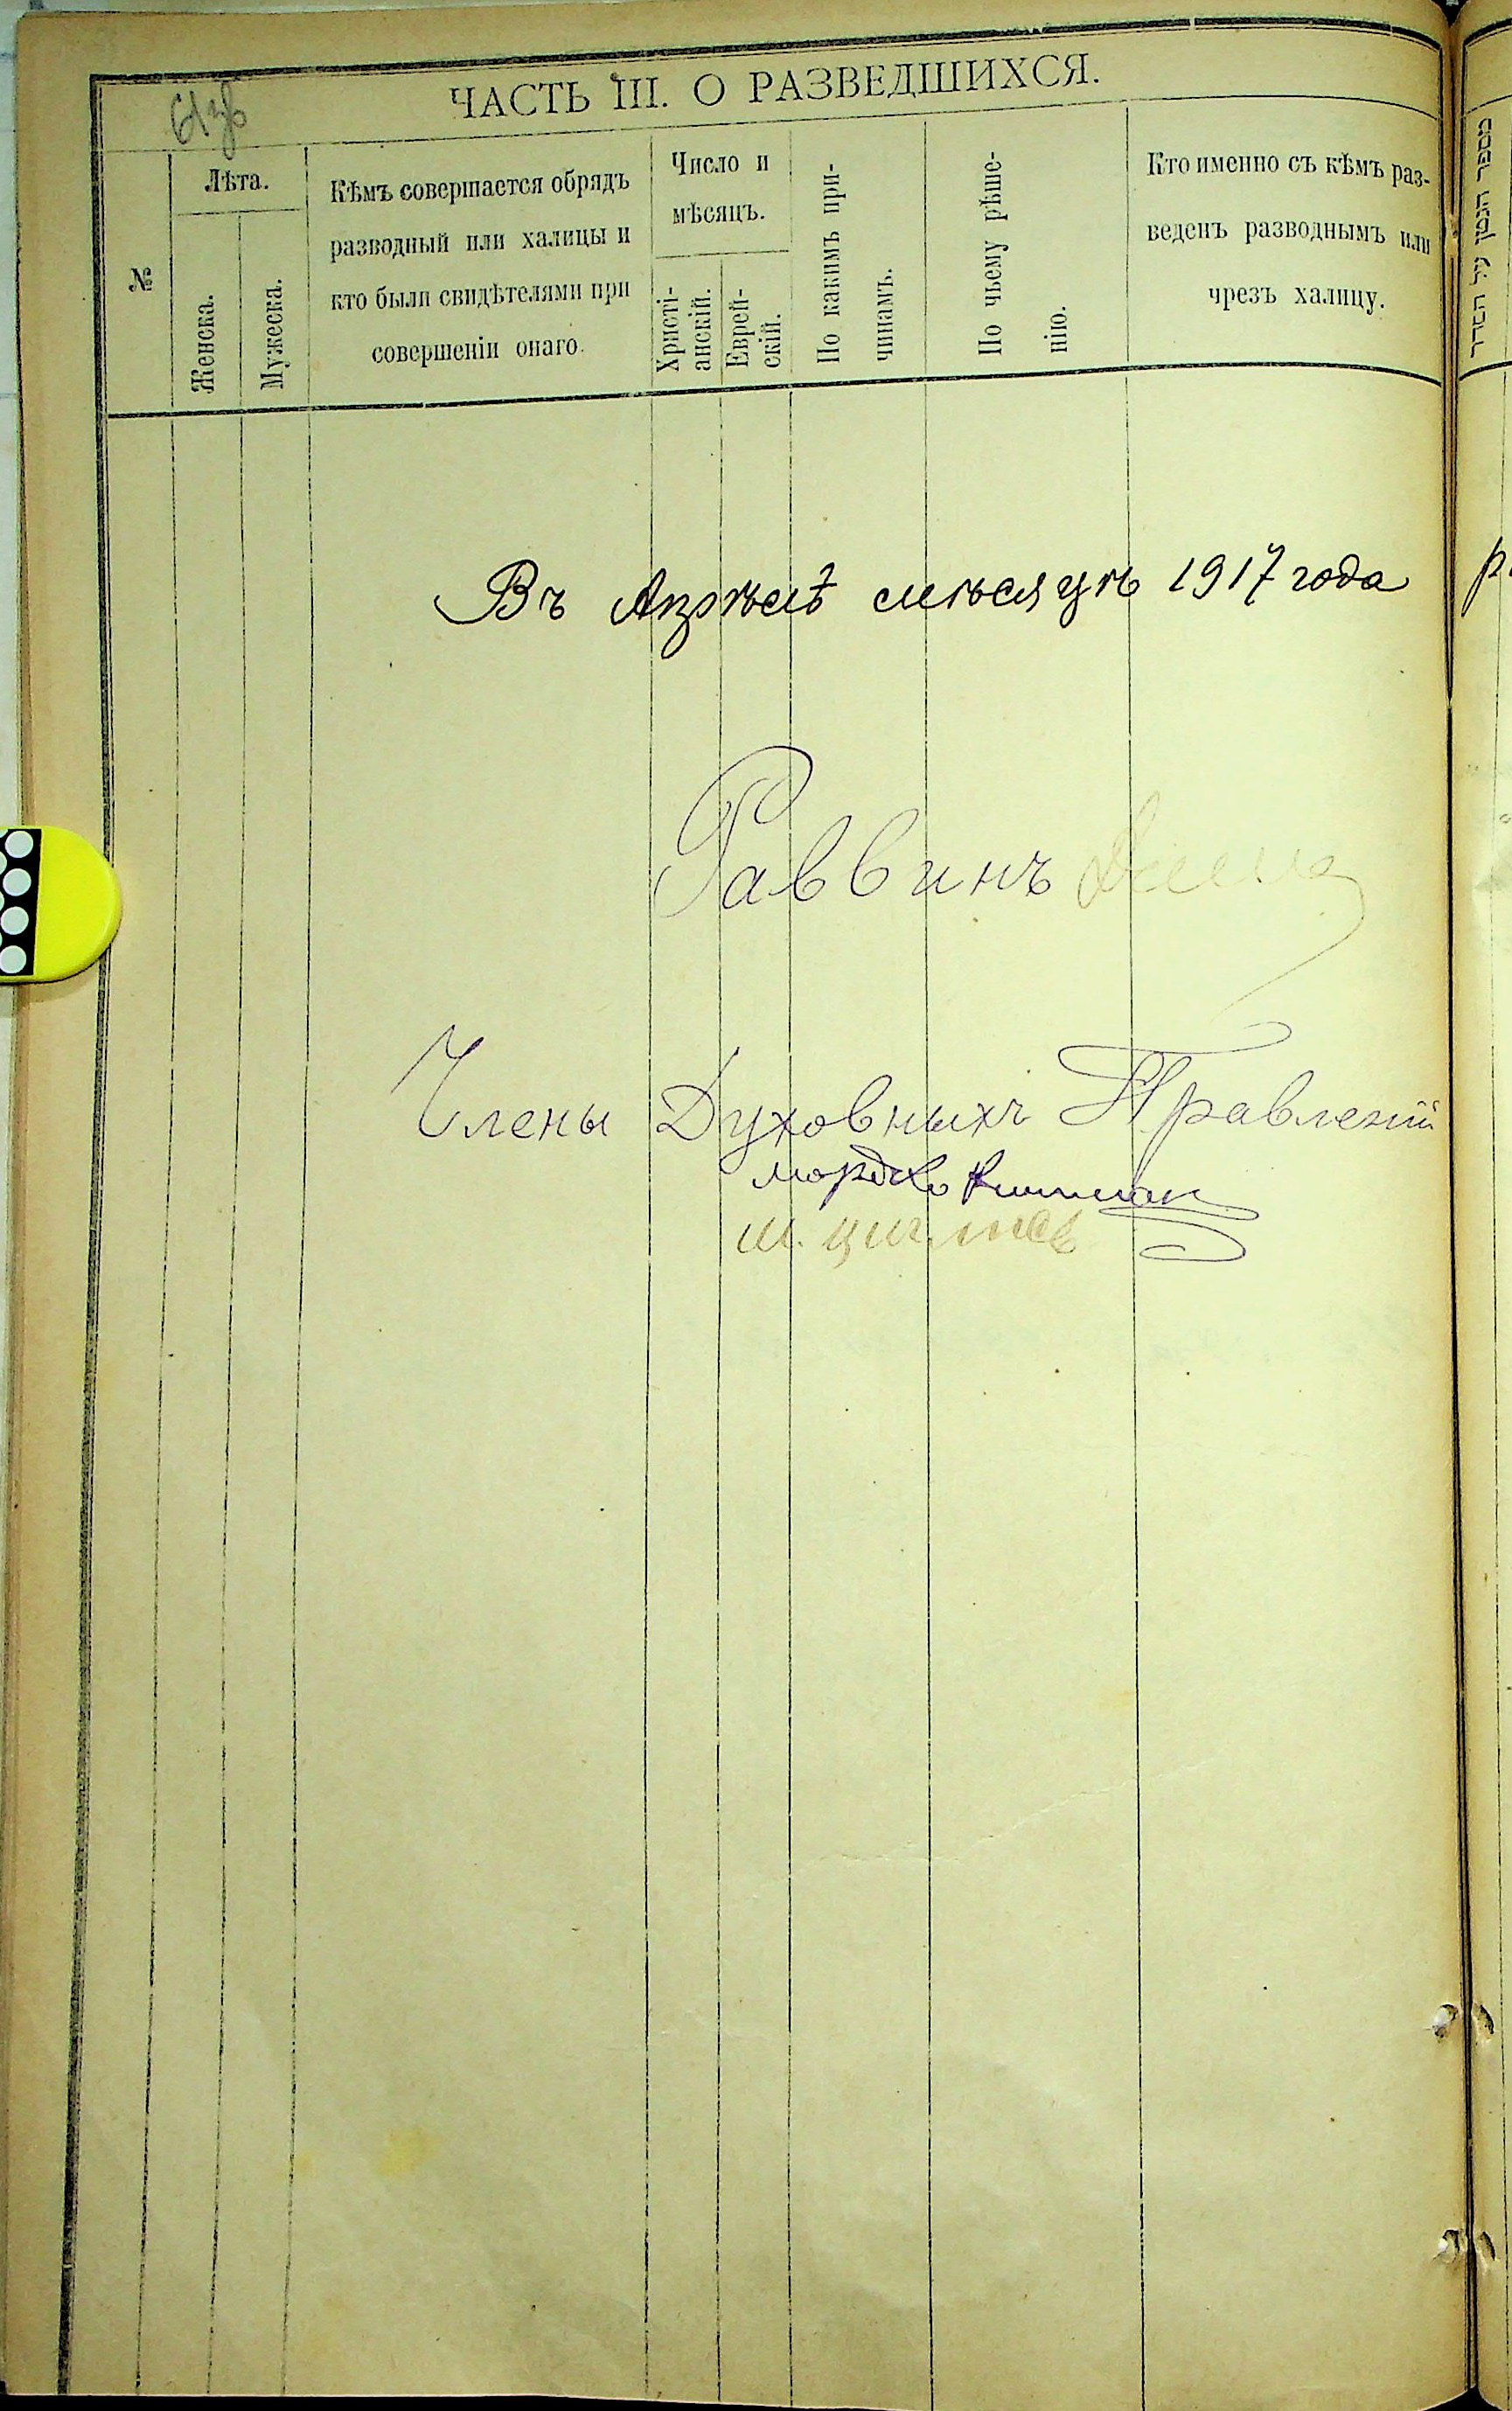 ЧАСТЬ III. О РАЗВЕДШИХСЯ.
№
Лѣта.
Женска.
Мужеска.
Кѣмъ совершается обрядъ
разводный или халицы и
кто были свидѣтелями при
совершеніи онаго.
Число и
мѣсяцъ.
Христі-
анскій.
Еврей-
скій.
По какимъ при-
чинамъ.
По чьему рѣше-
нію.
Кто именно съ кѣмъ раз-
веденъ разводнымъ или
чрезъ халицу.
מספר הגטין על הסדר
Въ Апрѣлѣ мѣсяцѣ 1917 года
Раввинъ
Члены Духовныхъ Правленій
Мордко
Ш.